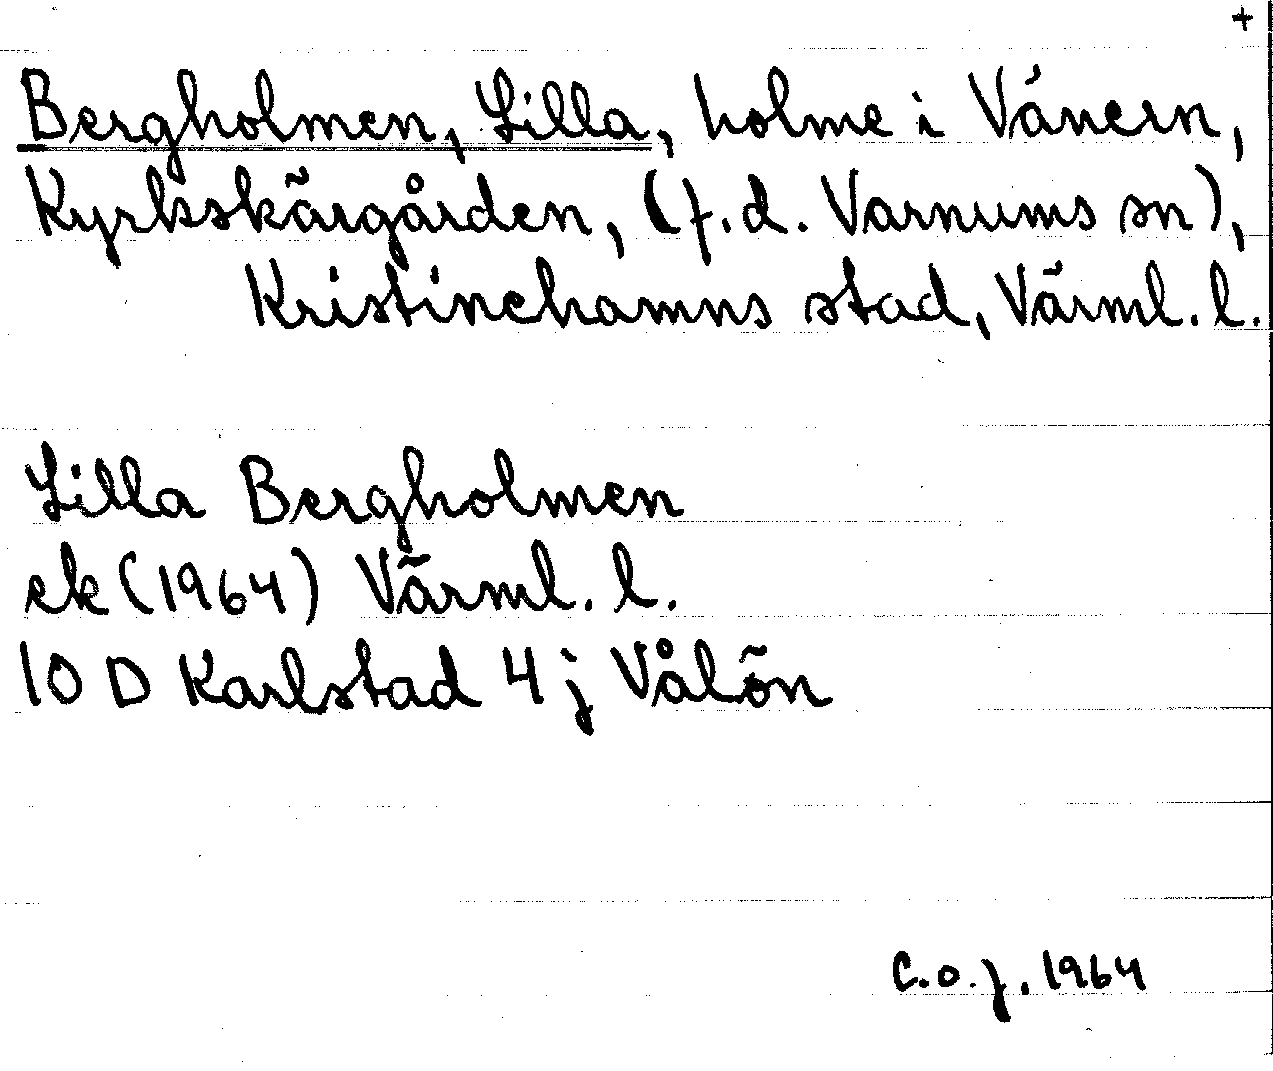 +
Bergholmen, Lilla, holme i Vänern,
Kyrkskärgården, (f.d. Varnums sn),
Kristinehamns stad, Värml. l.
Lilla Bergholmen
ek (1964) Värml. l.
10 D Karlstad 4 j Vålön
C.O.J. 1964